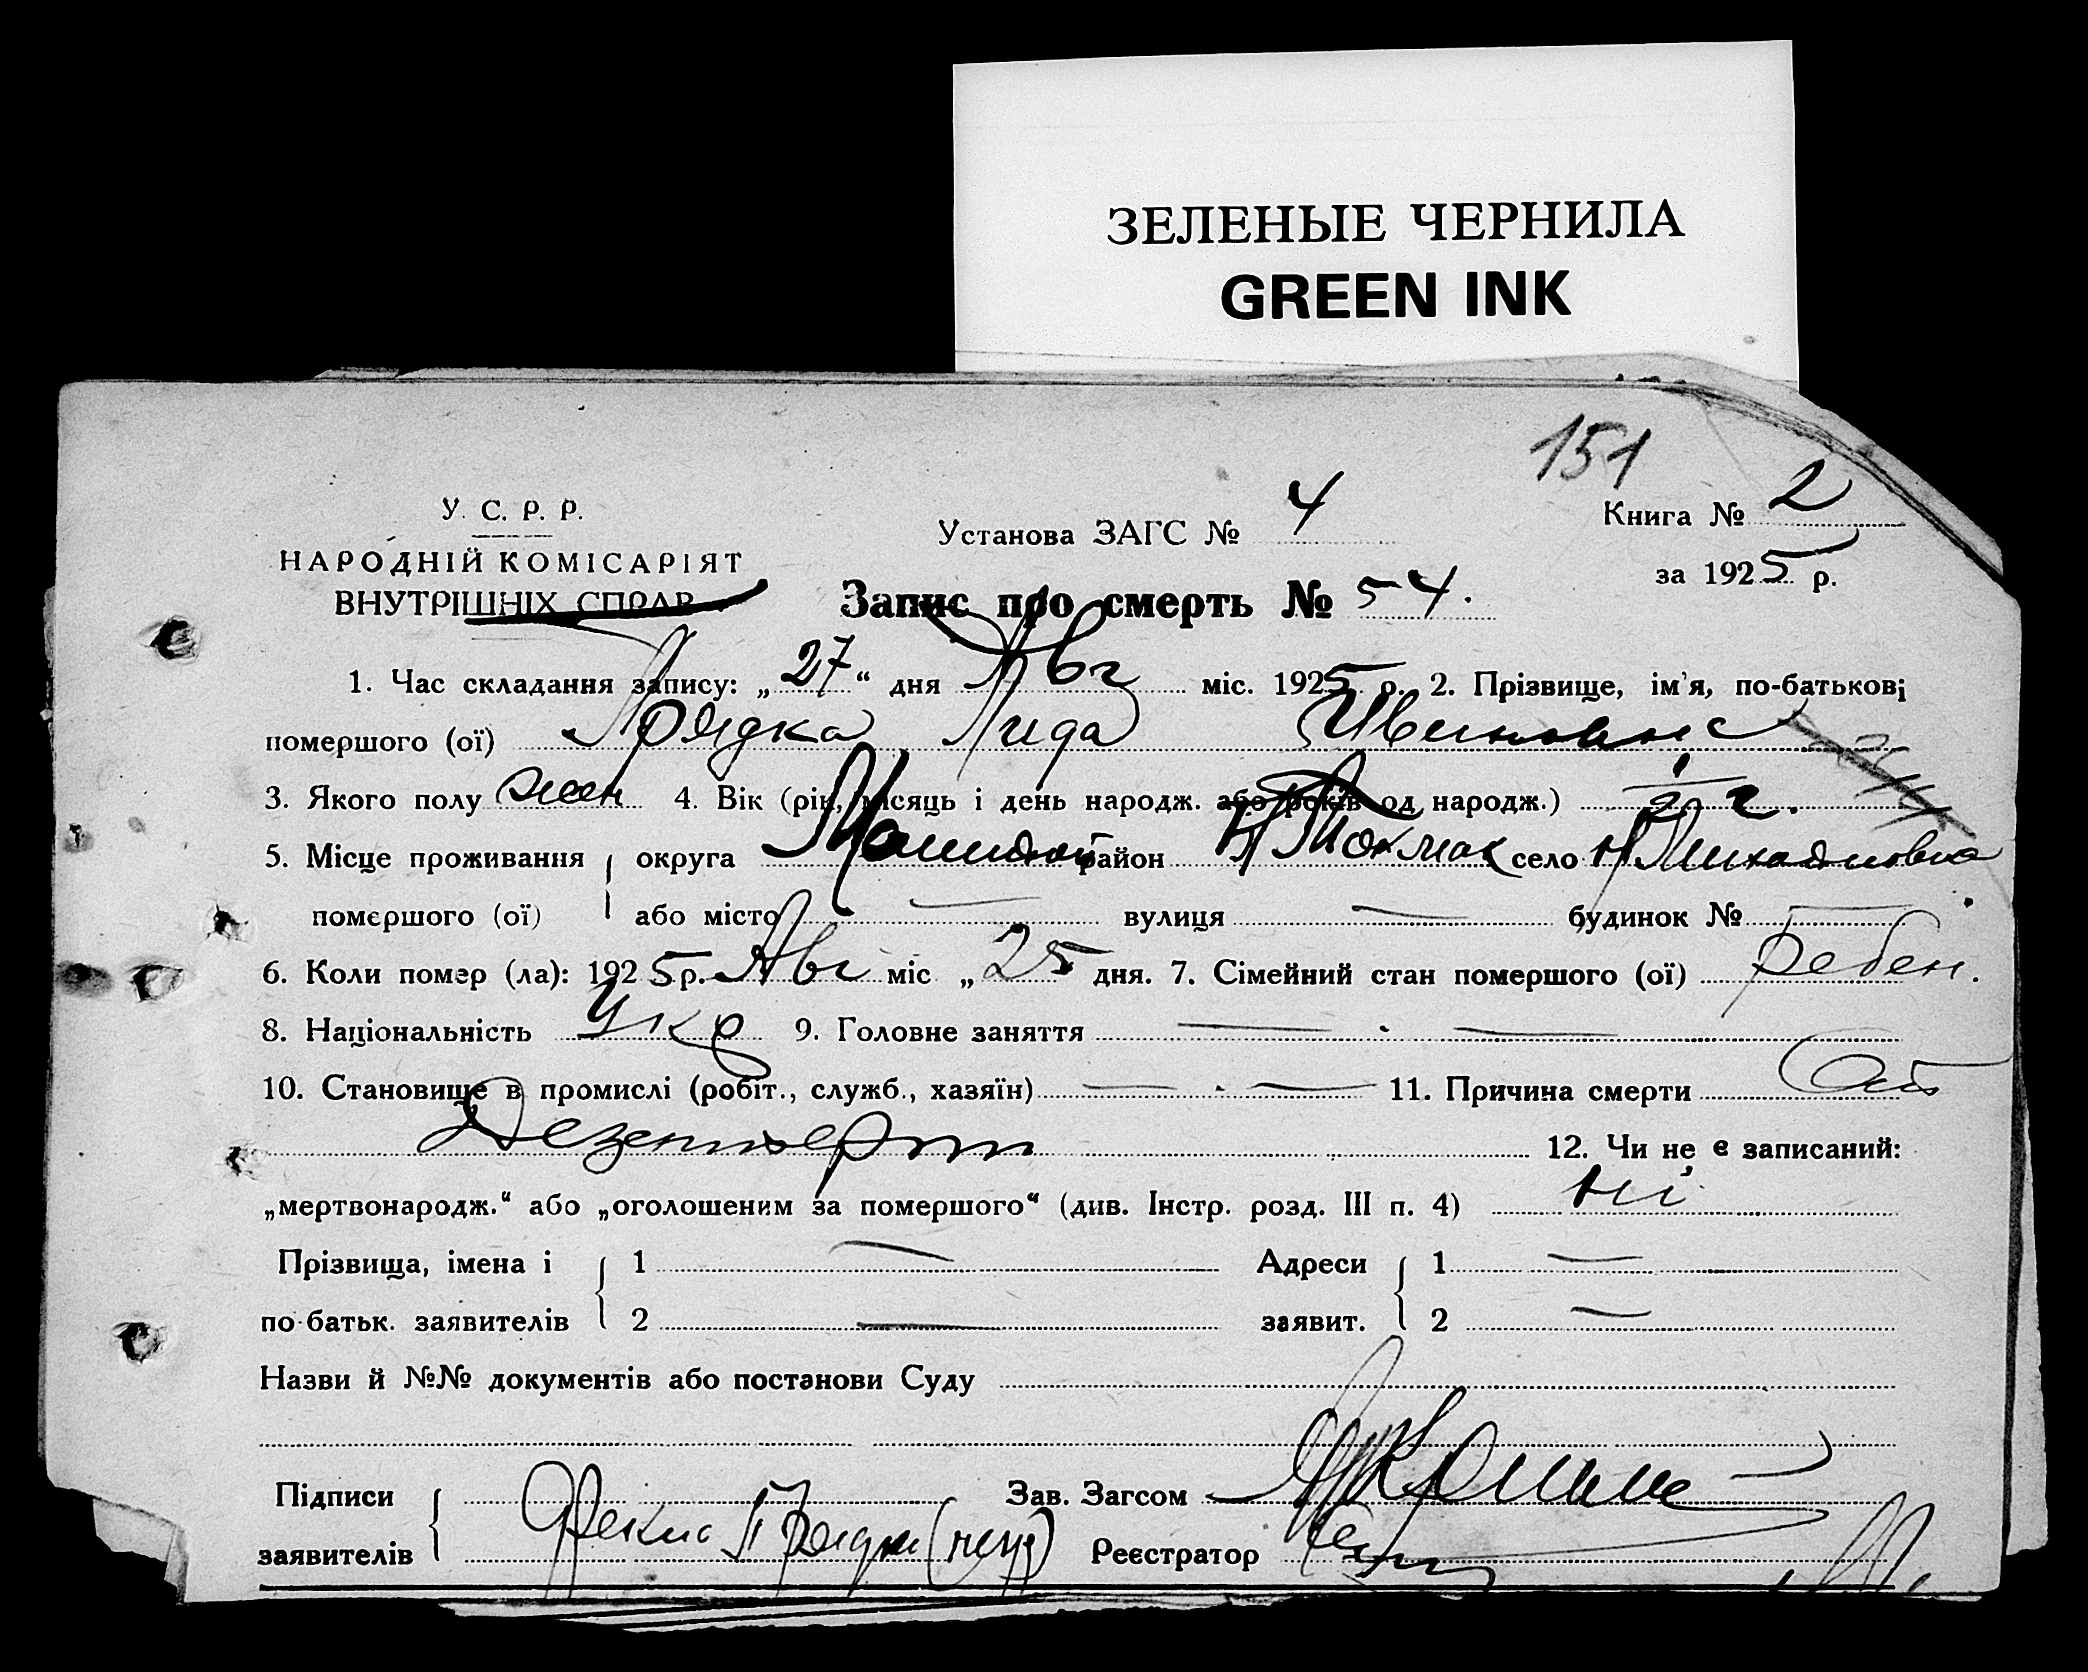 ЗЕЛЕНЫЕ ЧЕРНИЛА
GREEN INK
151
У. С. Р. Р.
НАРОДНІЙ КОМІСАРІЯТ
ВНУТРІШНІХ СПРАВ
Установа ЗАГС № 4
Книга № 2
за 1925 р.
Запис про смерть № 54.
1. Час складання запису: „27“ дня Авг міс. 1925 р. 2. Прізвище, ім'я, по-батькові
помершого (ої) Лида
3. Якого полу жен 4. Вік (рік, місяць і день народж. або років од народж.) 1/2 г.
5. Місце проживання округа район Н Токмак село Н Михайловка
помершого (ої) або місто — вулиця — будинок № —
6. Коли помер (ла): 1925 р. Авг міс „25 дня. 7. Сімейний стан помершого (ої) ребен.
8. Національність Укр 9. Головне заняття — . —
10. Становище в промислі (робіт., служб., хазяїн) — . — 11. Причина смерти
12. Чи не є записаний:
„мертвонародж.“ або „оголошеним за помершого“ (див. Інстр. розд. III п. 4) ні
Прізвища, імена і 1 — Адреси 1 —
по-батьк. заявителів 2 — заявит. 2 —
Назви й №№ документів або постанови Суду
Підписи Зав. Загсом
заявителів Реєстратор